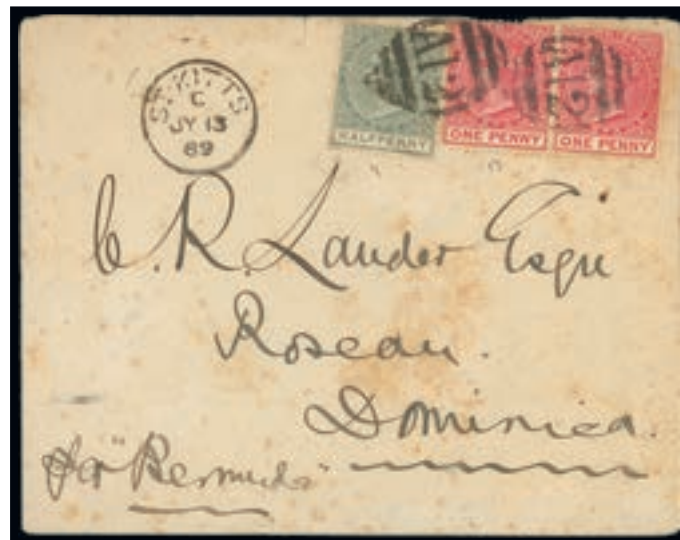 ST. KITTS
C
JY 13
89
A12
A12
HALFPENNY
ONE PENNY
ONE PENNY
C. R. Lauder Esqre
Roseau.
Dominica.
Per "Bermuda"